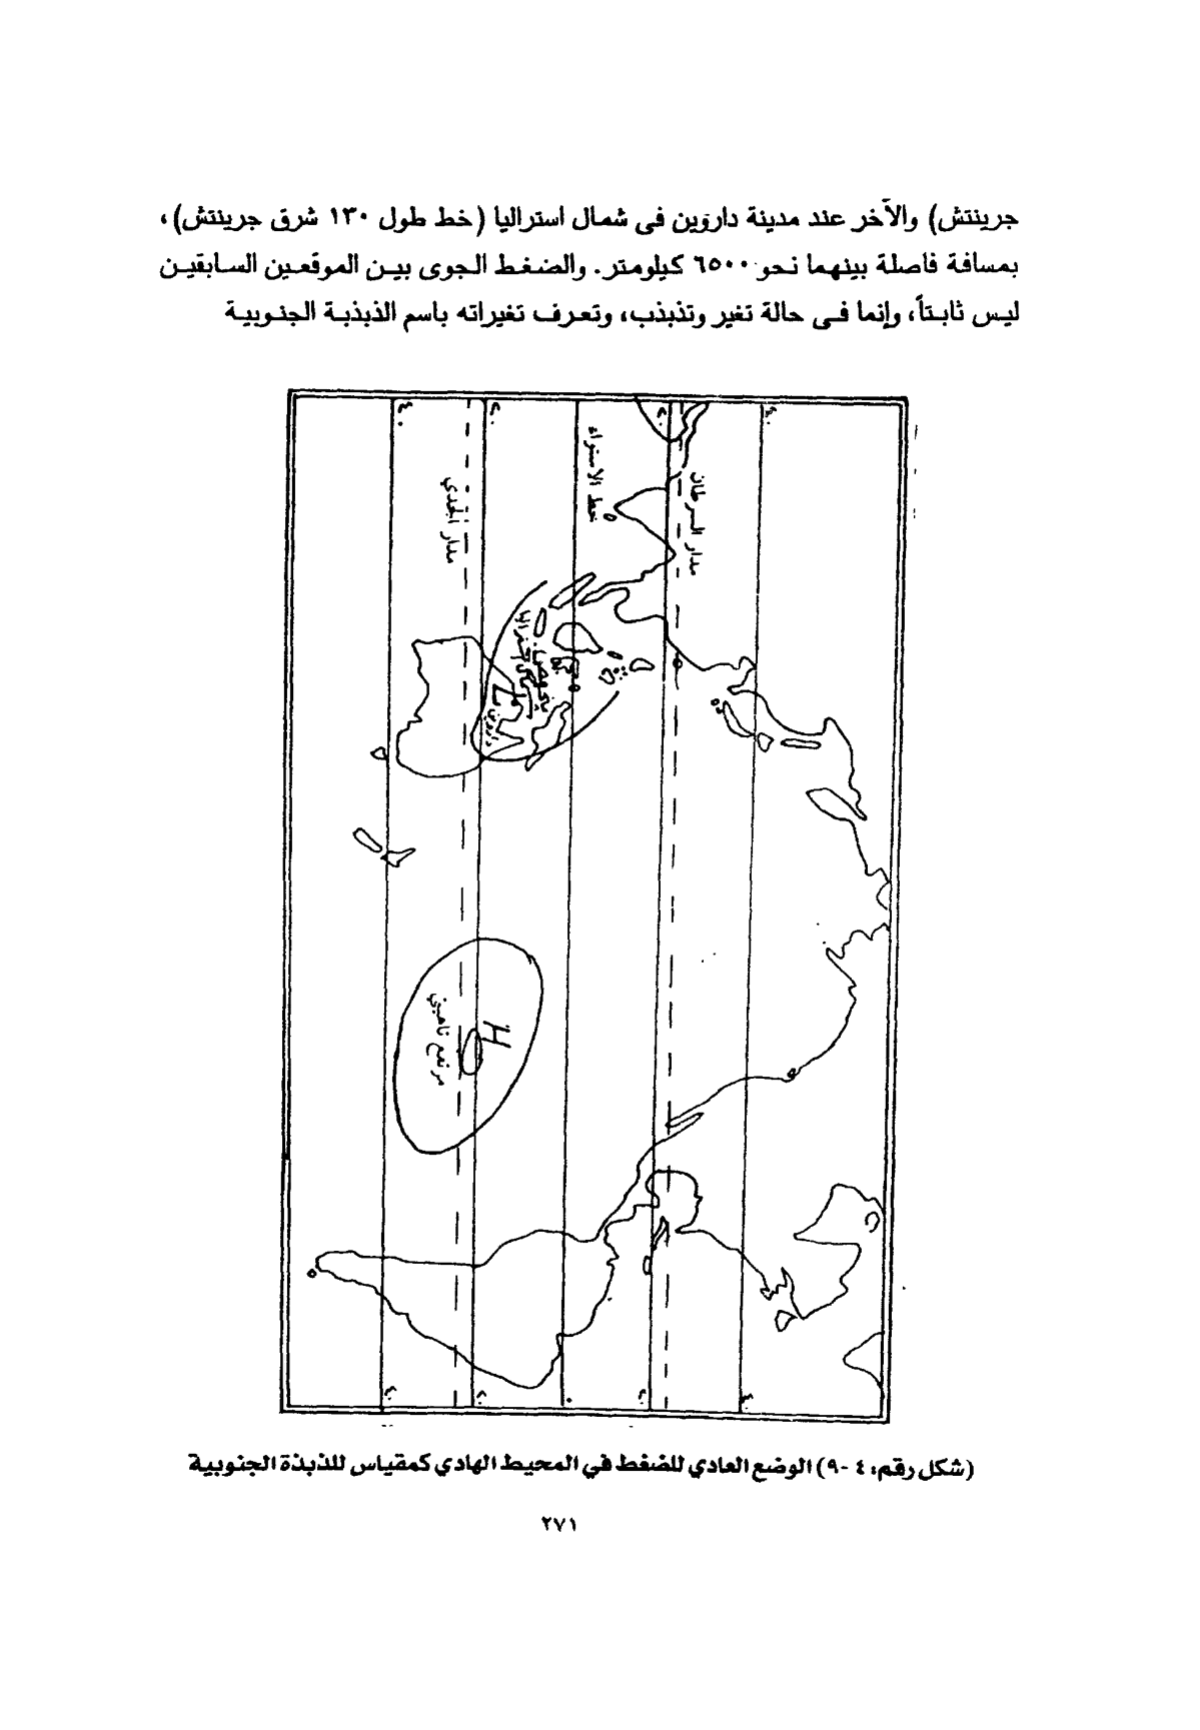 جرينتش) والآخر عند مدينة داروين فى شمال استراليا (خط طول ١٣٠ شرق جرينتش)،
بمسافة فاصلة بينهما نحو ٦٥٠٠ كيلومتر. والضغط الجوى بين الموقعين السابقين
ليس ثابتاً، وإنما فى حالة تغير وتذبذب، وتعرف تغيراته باسم الذبذبة الجنوبية
٤٠
٢٠
٢٠
٤٠
مدار الجدي
خط الاستواء
مدار السرطان
منخفض
شمال استراليا
L
داروين
H
مرتفع تاهيتي
٤٠
٢٠
٠
٢٠
٤٠
(شكل رقم: ٤ -٩) الوضع العادي للضغط في المحيط الهادي كمقياس للذبذة الجنوبية
٢٧١